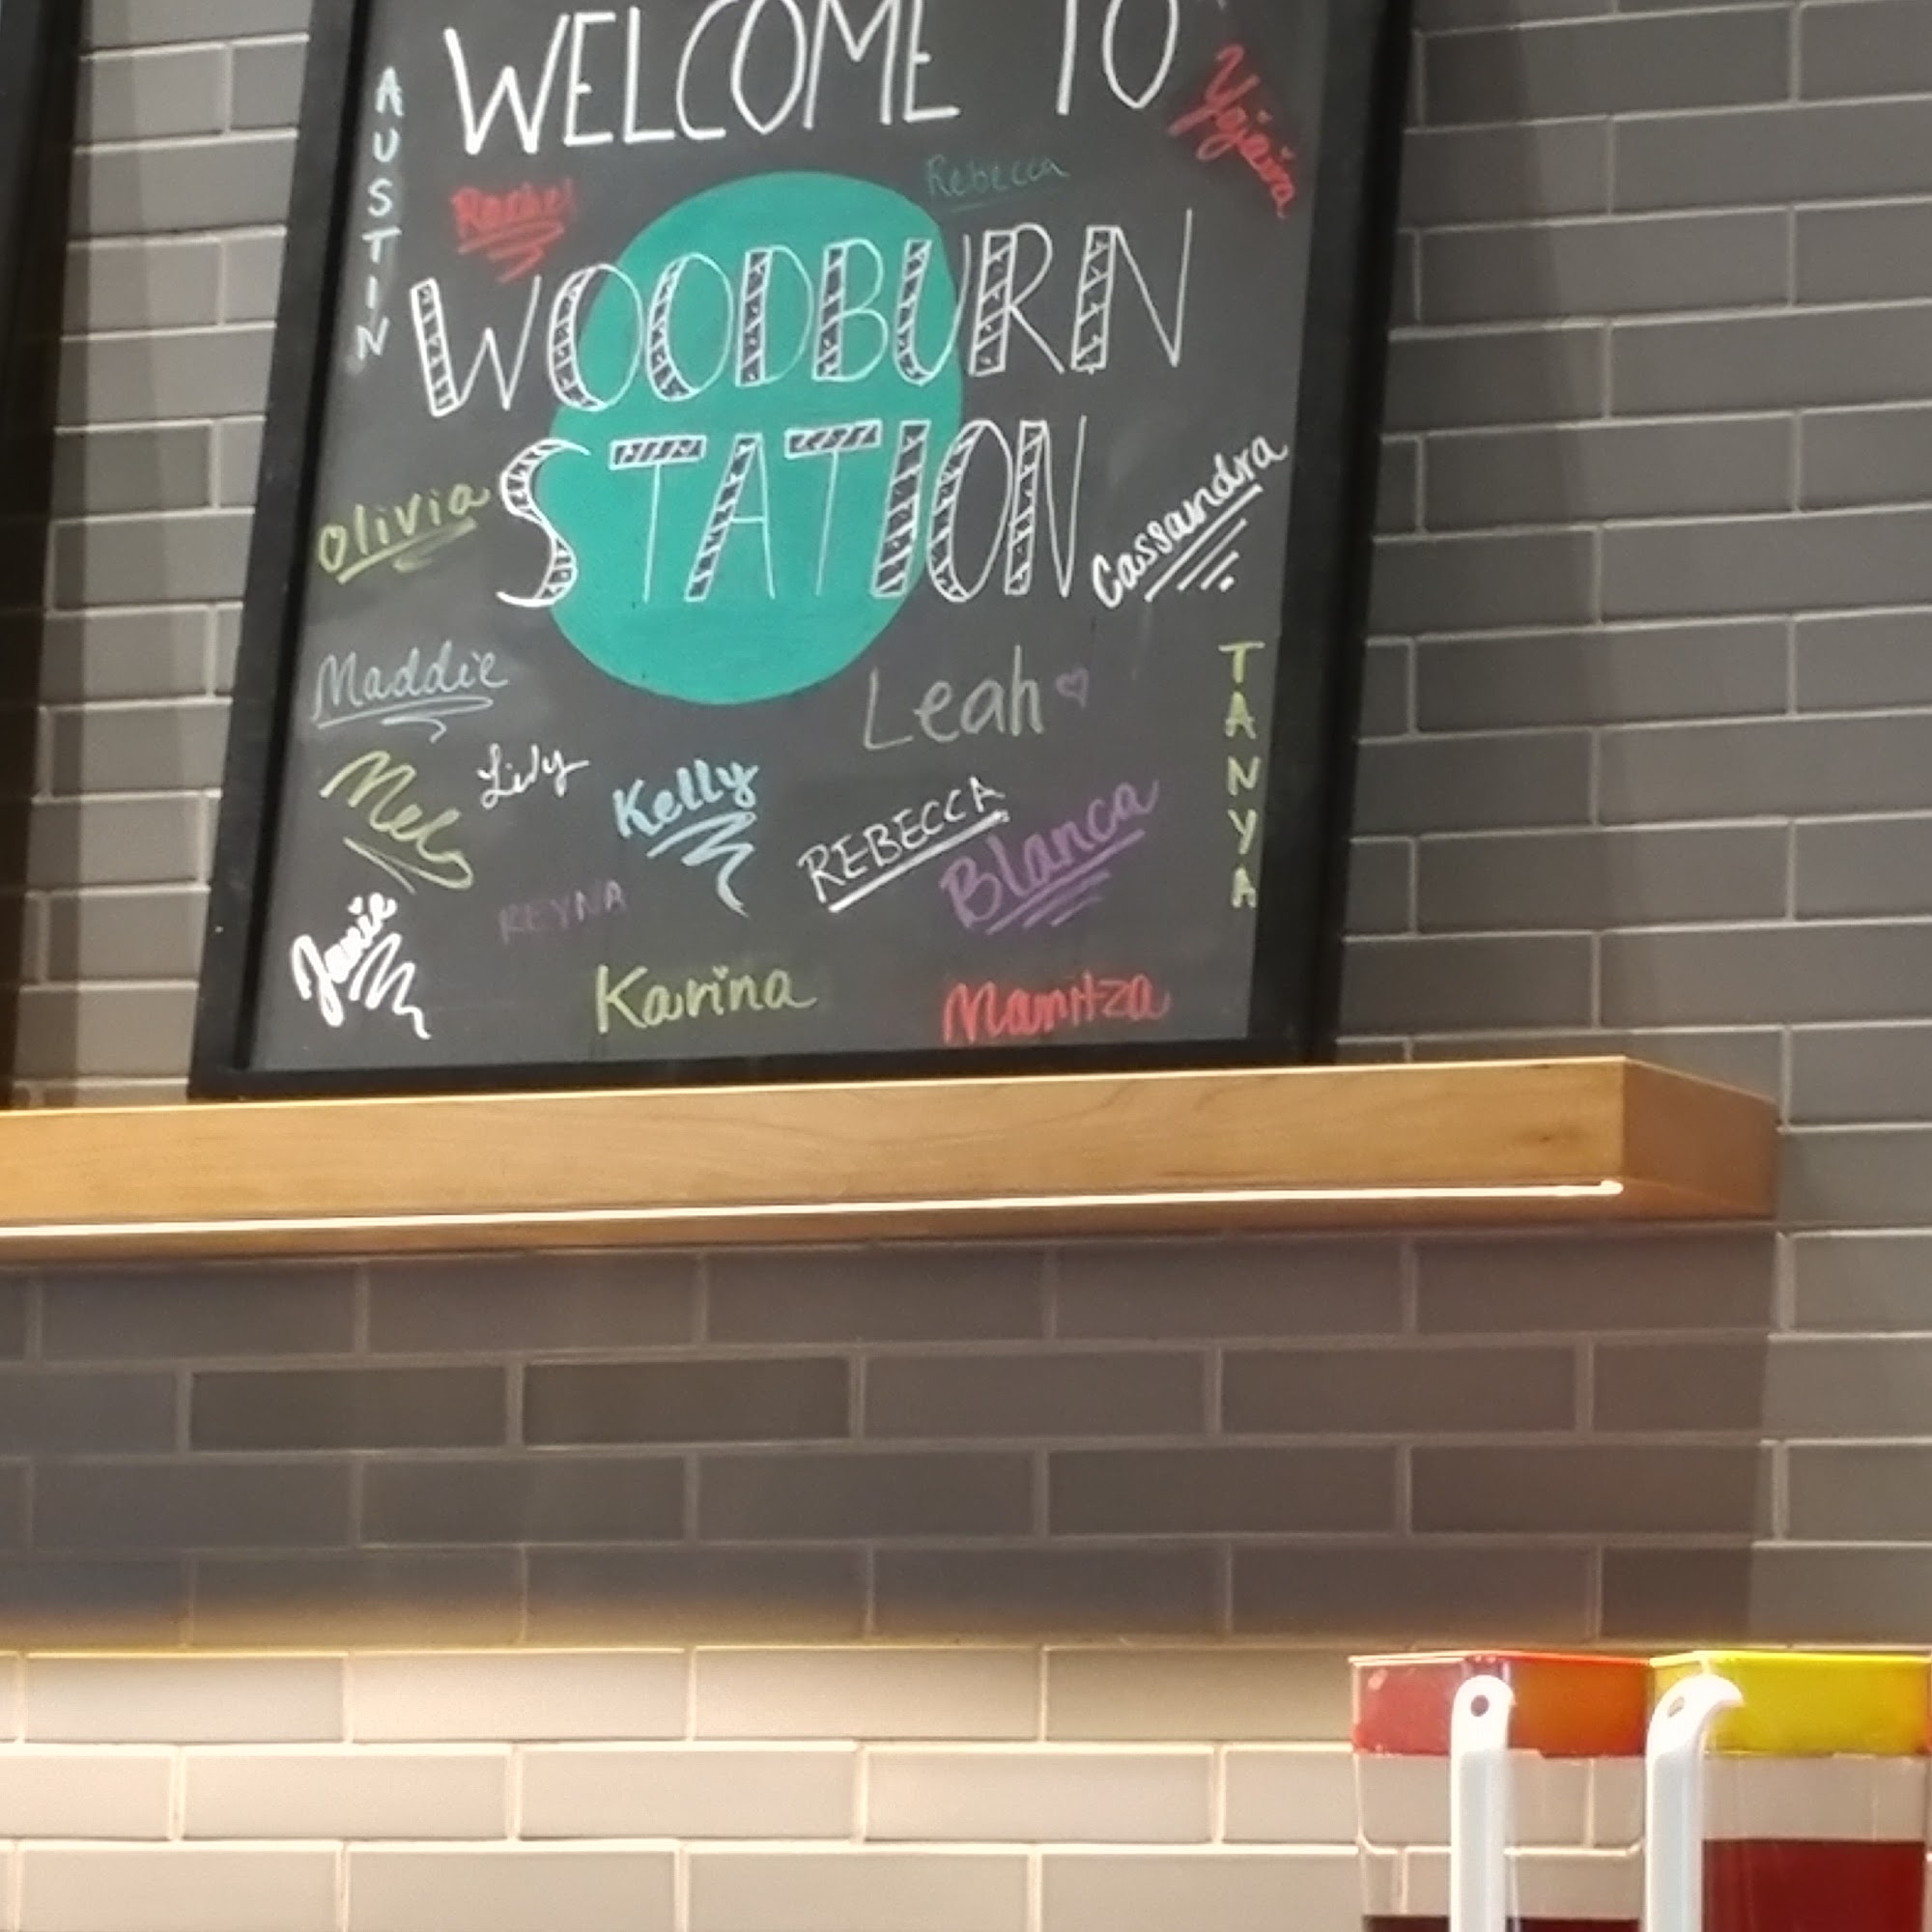 WELCOME TO
AUSTIN
Rachel
Rebecca
WOODBURN
STATION
Olivia
Cassandra
Maddie
Leah
TANYA
Mel
Lily
Kelly
REBECCA
Blanca
REYNA
Karina